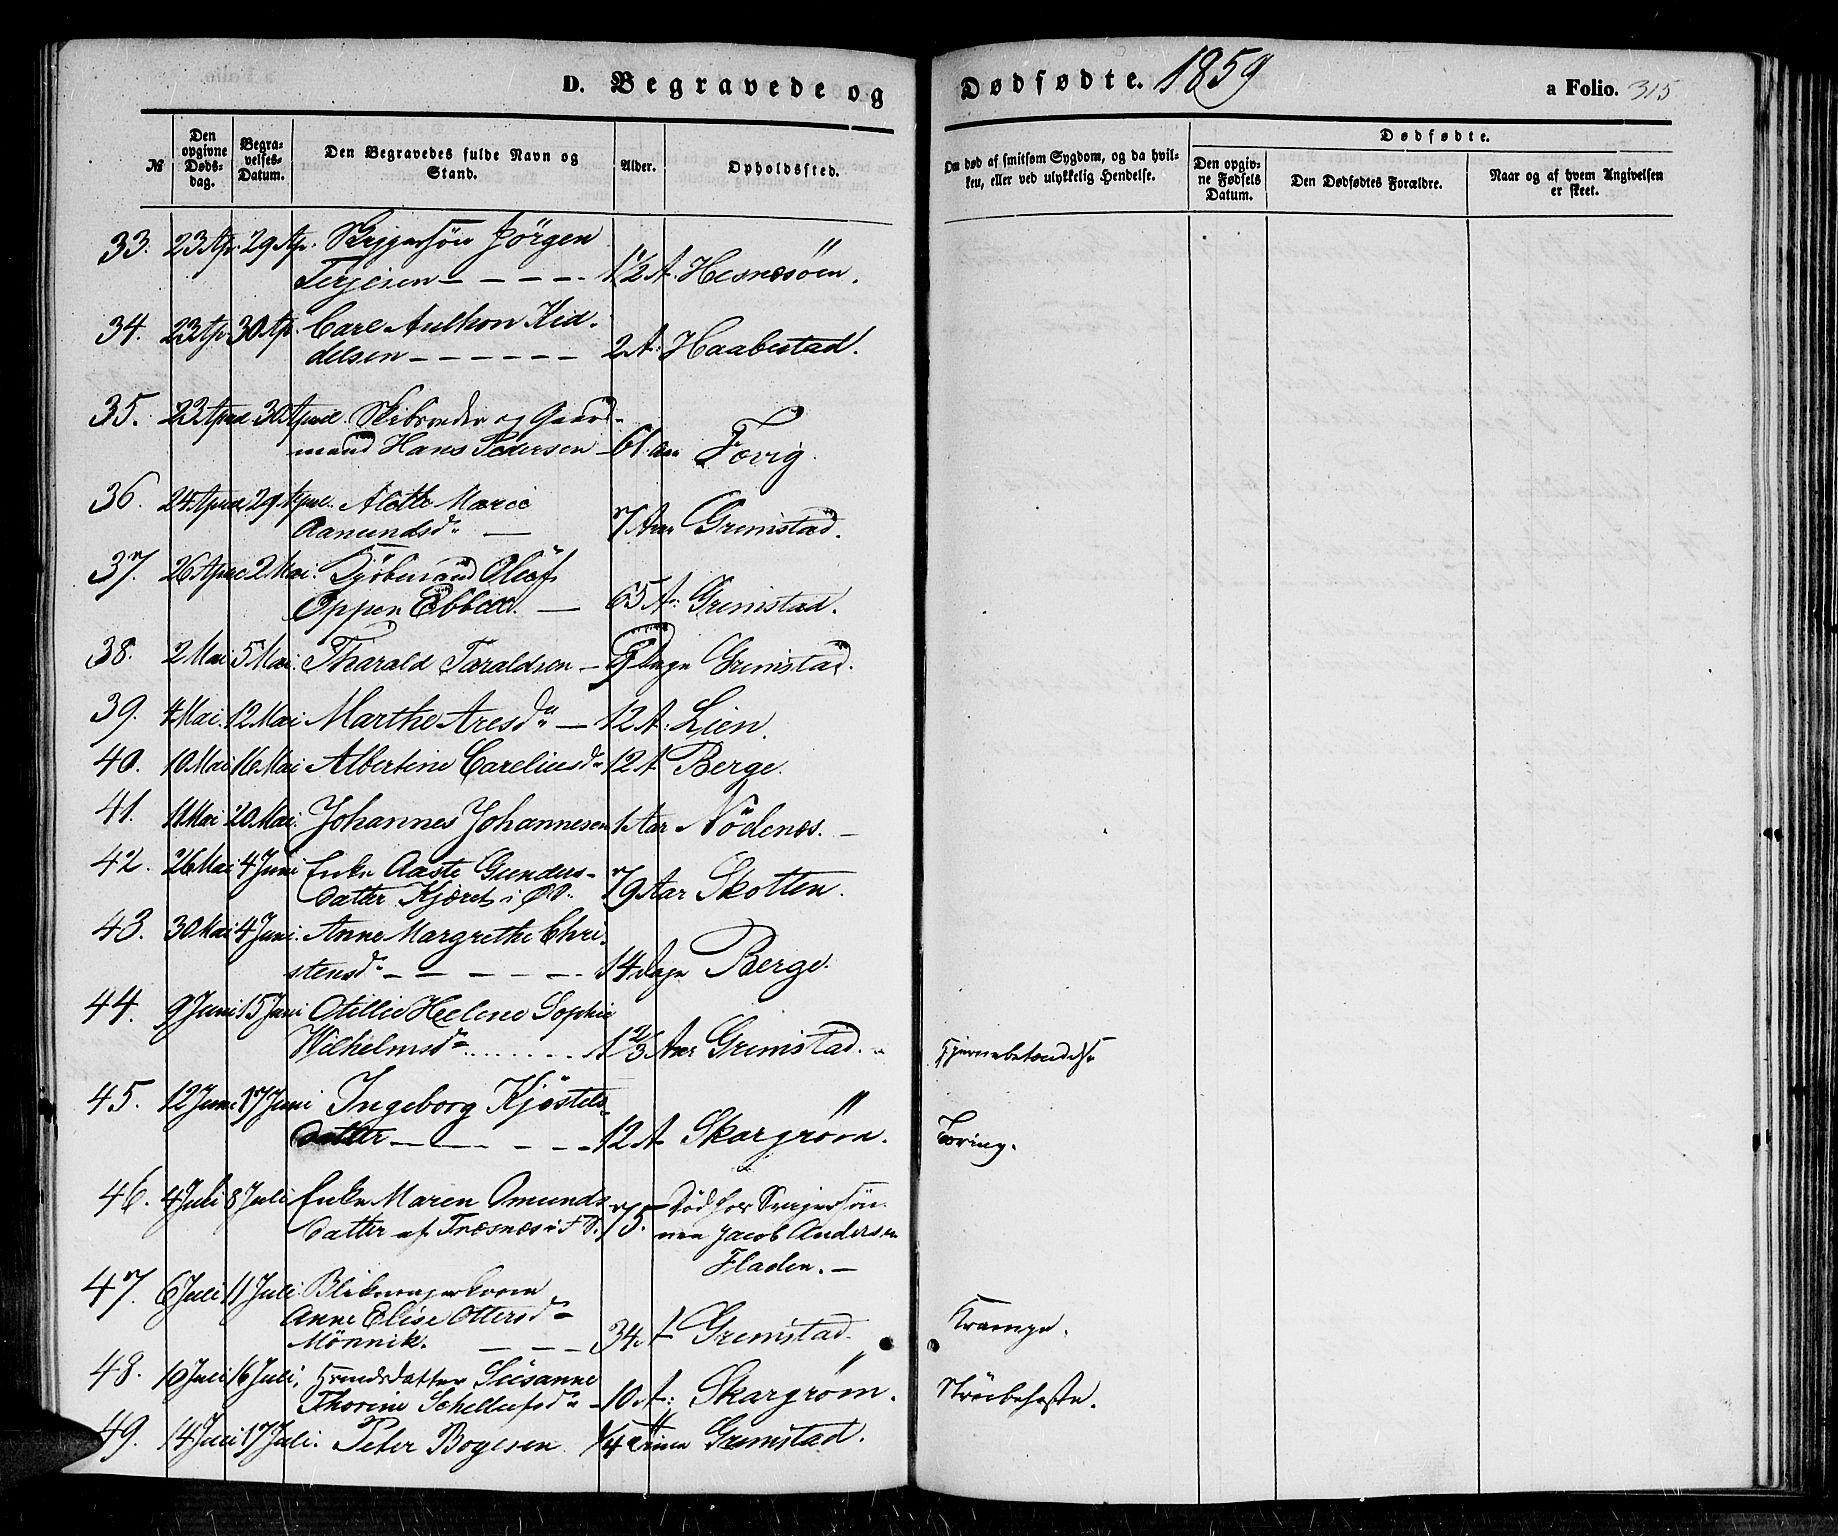 D. Begravede og Dødfødte. 1859
a Folio. 315
№
Den opgivne Døds-dag.
Begra-velses-Datum.
Den Begravedes fulde Navn og Stand.
Alder.
Opholdssted.
Om død af smitsom Sygdom, og da hvil-
ken, eller ved ulykkelig Hendelse.
Dødfødte.
Den opgiv-ne Fødsels Datum.
Den Dødfødtes Forældre.
Naar og af hvem Angivelsen er skeet.
33. 23 Ap. 29 Ap. Jørgen
Terjesen 1½ A. Hesnesøen.
34. 23 Ap. 30 Ap. Carl Anthon Kid-
delsen 2 A. Haabestad.
35. 23 April 30 April Skibsreder og Gaard-
mand Hans Pedersen 61 Aar Fevig.
36. 24 April 29 April Alette Marie
Aanundsd. 7 Aar Grimstad.
37. 26 April 2 Mai. Oluf
Oppen Ebbell. 65 A. Grimstad.
38. 2 Mai 5 Mai. Tharald Taraldsen 9 Dage Grimstad.
39. 4 Mai. 12 Mai Marthe Aresd. 12 A. Lien.
40. 10 Mai 16 Mai Albertine Careliusd. 12 A Berge.
41. 11 Mai 20 Mai. Johannes Johannesen 1 Aar Nødenes.
42. 26 Mai 4 Juni Enke Aaste Gunders-
datter Kjæret i ØD. 79 Aar Skotten.
43. 30 Mai 4 Juni. Anne Margrethe Chri-
stensd. 14 Dage Berge.
44. 9 Juni 15 Juni Otillie Helene Sophie
Wilhelmsd. 1 2/3 Aar Grimstad. Hjernebetændelse
45. 12 Juni 17 Juni Ingeborg Kjøstels-
datter 12 A Skargrøm. Tæring.
46. 4 Juli 8 Juli Enke Maren Omunds-
datter af Træsnes i F.S. 75. død hos
nen Jacob Andersen
Fladen.
47. 6 Juli 11 Juli
Anne Elise Ottersd.
Mønnik. 34 A Grimstad. Krampe.
48. 10 Juli 16 Juli, Susanne
Thorine Schellufsd. 10 A. Skargrøm. Strubehoste.
49. 14 Juli 17 Juli. Peter Bogesen ¼ Time Grimstad.